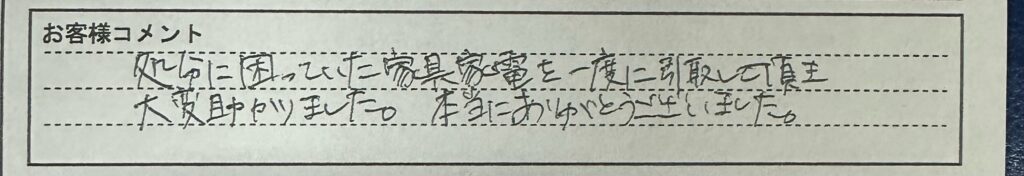 お客様コメント
処分に困っていた家具家電を一度に引取して頂き
大変助かりました。 本当にありがとうございました。